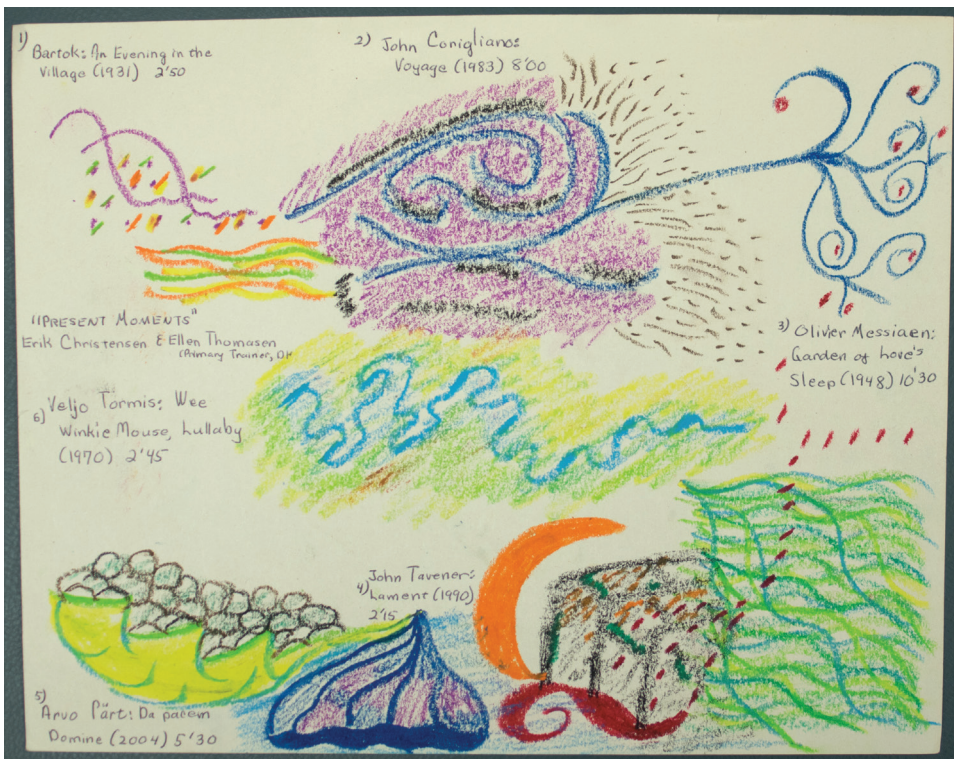 1)
Bartok: An Evening in the
Village (1931) 2'50
2) John Corigliano:
Voyage (1983) 8'00
"PRESENT MOMENTS"
Erik Christensen & Ellen Thomasen
(Primary Trainer, DK
3) Olivier Messiaen:
Garden of Love's
Sleep (1948) 10'30
6) Veljo Tormis: Wee
Winkie Mouse, Lullaby
(1970) 2'45
4) John Tavener:
Lament (1990)
2'15
5)
Arvo Pärt: Da pacem
Domine (2004) 5'30